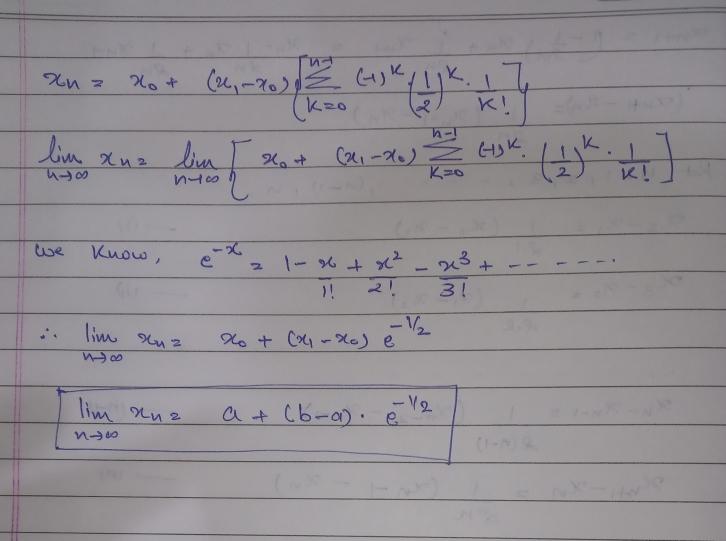 xₙ = x₀ + (x₁-x₀) [ n-1 Σ K=0 (-1)^K (1/2)^K · 1/K! ]
lim n→∞ xₙ = lim n→∞ [ x₀ + (x₁-x₀) n-1 Σ K=0 (-1)^K · (1/2)^K · 1/K! ]
We know, e^-x = 1 - x/1! + x²/2! - x³/3! + -- -- -- .
∴ lim n→∞ xₙ = x₀ + (x₁-x₀) e^-1/2
lim n→∞ xₙ = a + (b-a) · e^-1/2